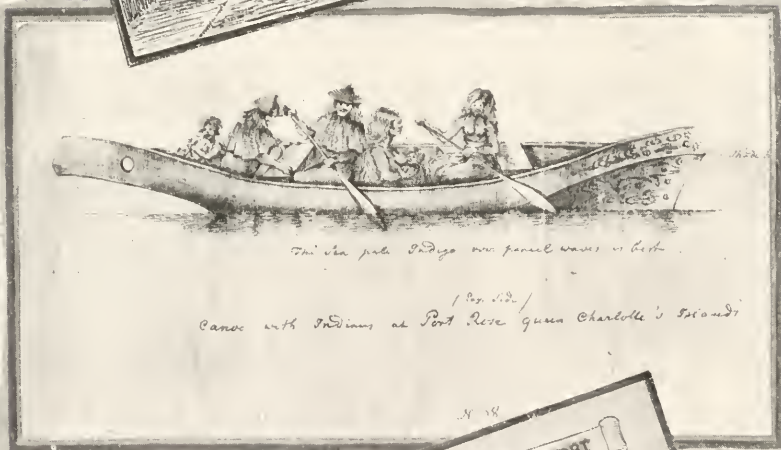 Shade
The Sea pale Indigo pencil waves is best
/ Sax. Side /
Canoe with Indians at Port Rose queen Charlotte's Islands
N 18